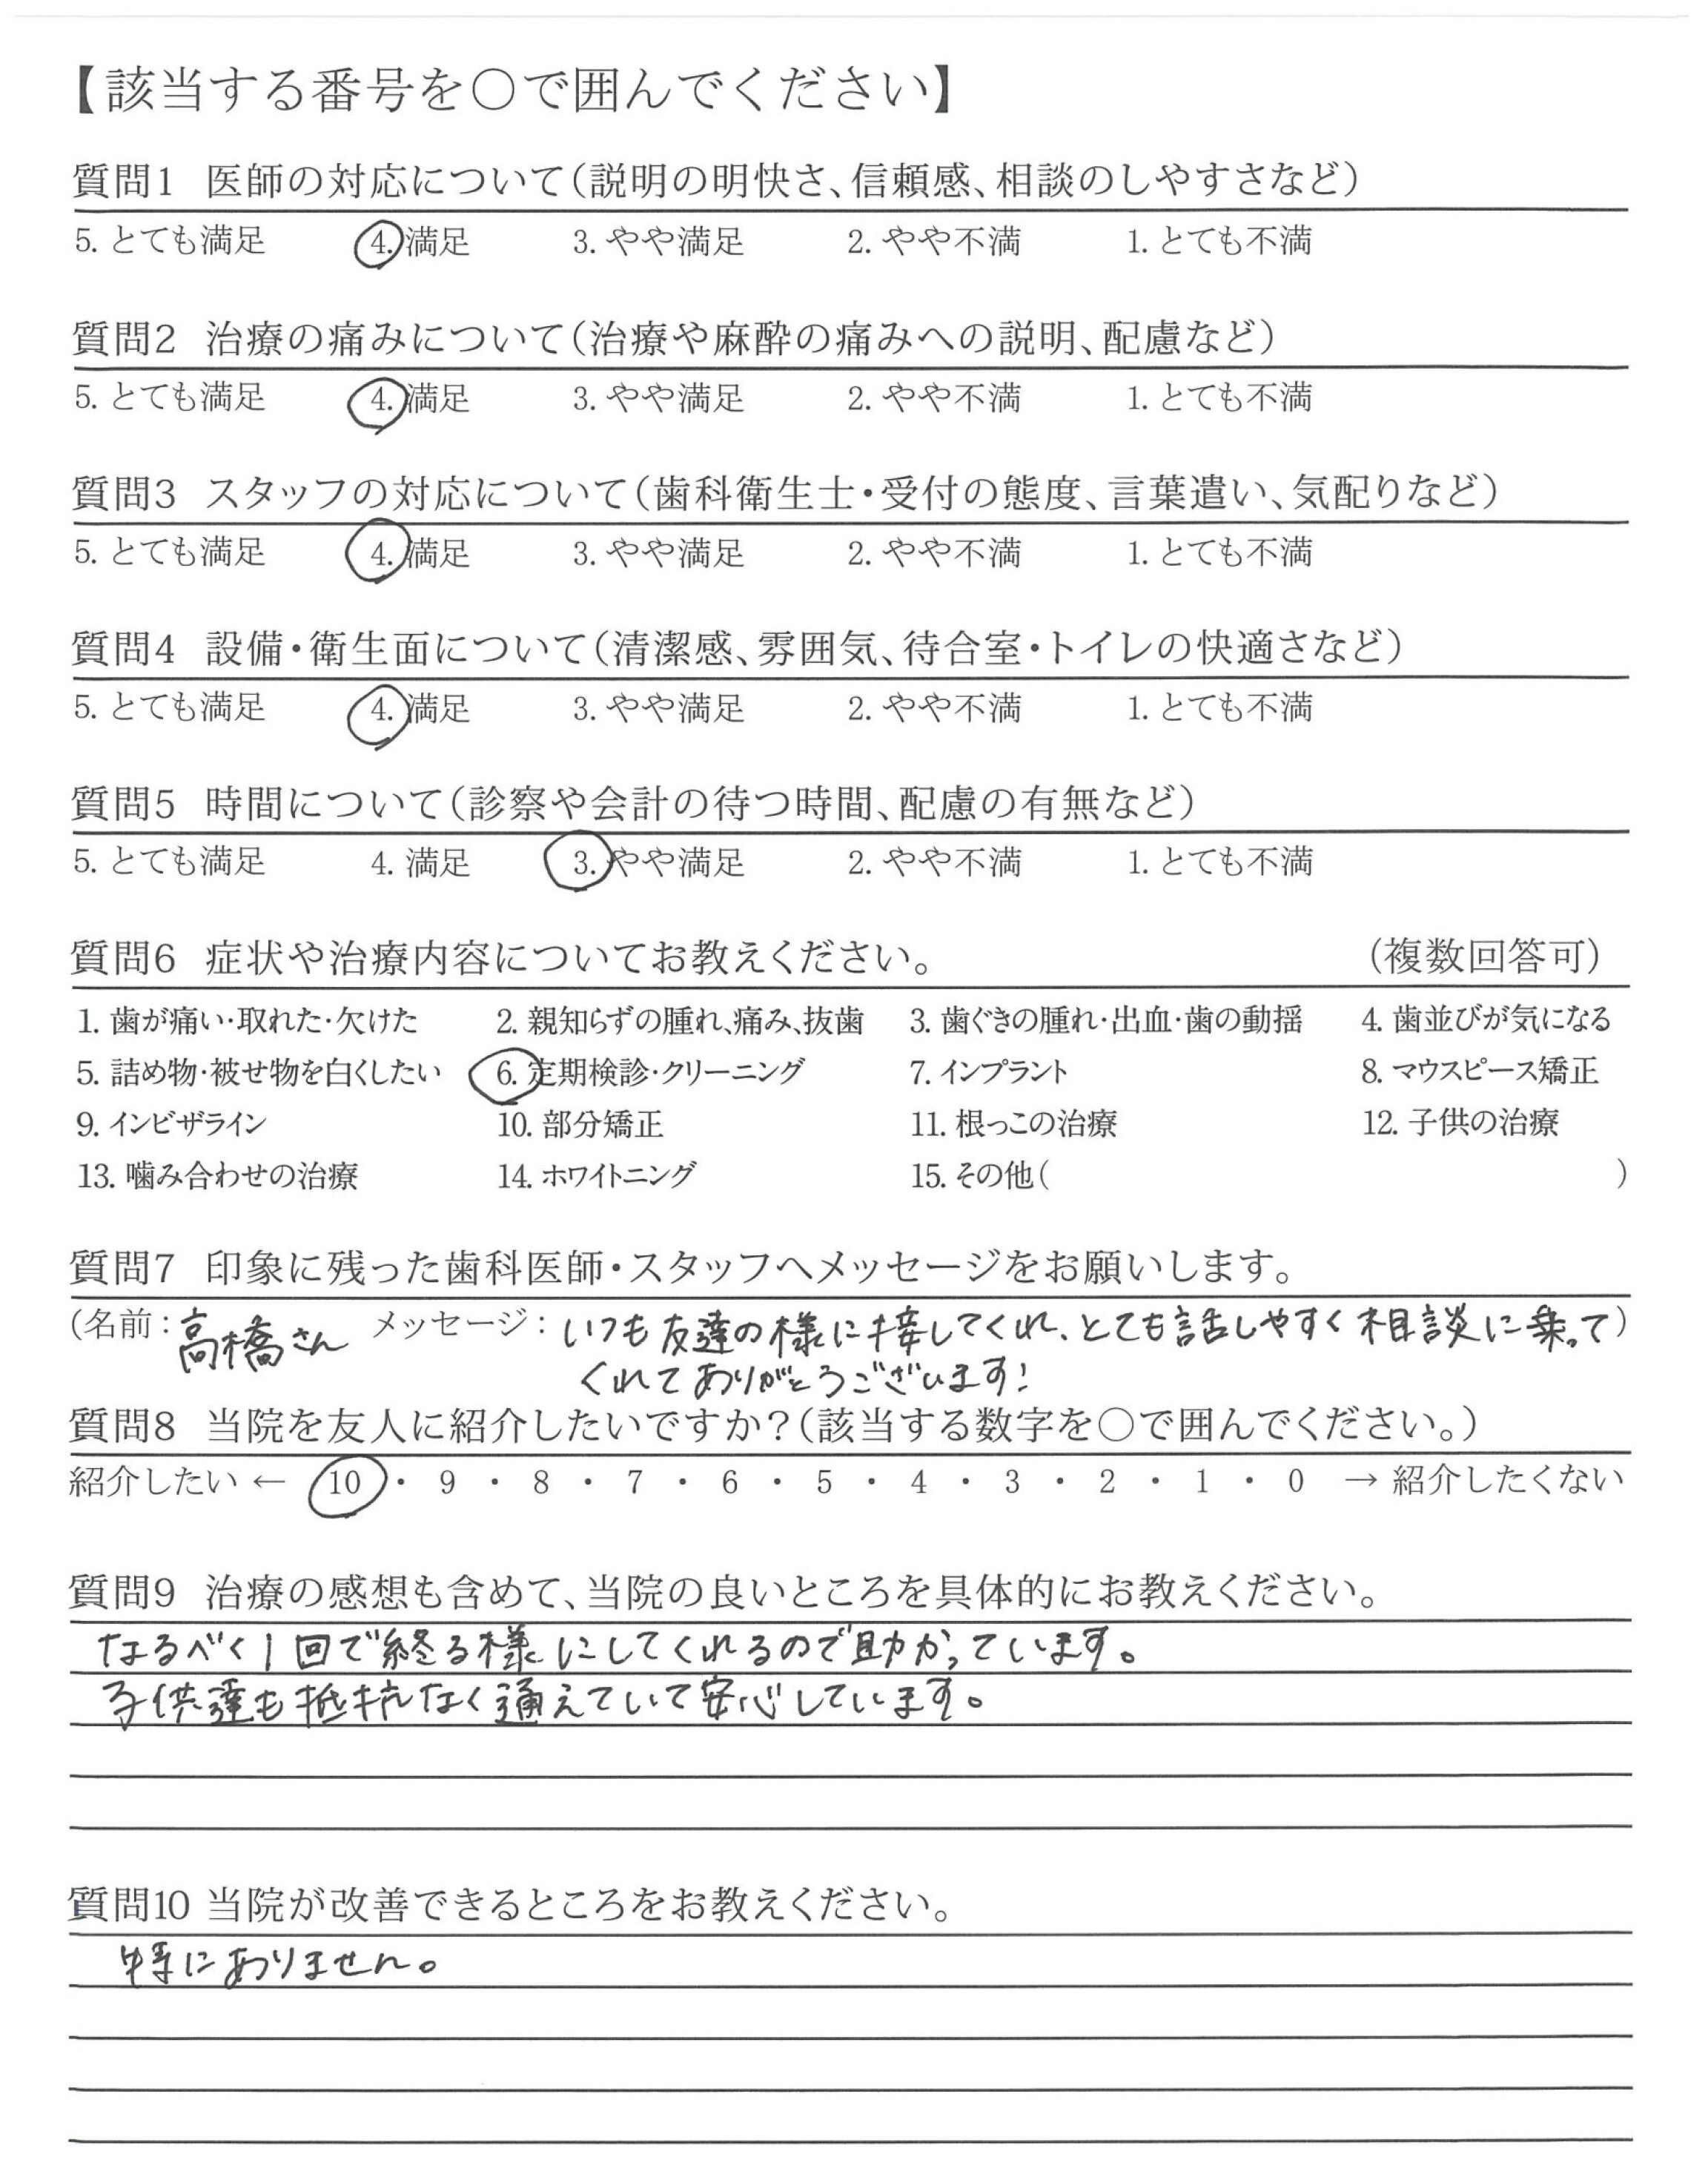 【該当する番号を〇で囲んでください】
質問1 医師の対応について(説明の明快さ、信頼感、相談のしやすさなど)
5. とても満足 4. 満足 3. やや満足 2. やや不満 1. とても不満
質問2 治療の痛みについて(治療や麻酔の痛みへの説明、配慮など)
5. とても満足 4. 満足 3. やや満足 2. やや不満 1. とても不満
質問3 スタッフの対応について(歯科衛生士・受付の態度、言葉遣い、気配りなど)
5. とても満足 4. 満足 3. やや満足 2. やや不満 1. とても不満
質問4 設備・衛生面について(清潔感、雰囲気、待合室・トイレの快適さなど)
5. とても満足 4. 満足 3. やや満足 2. やや不満 1. とても不満
質問5 時間について(診察や会計の待つ時間、配慮の有無など)
5. とても満足 4. 満足 3. やや満足 2. やや不満 1. とても不満
質問6 症状や治療内容についてお教えください。 (複数回答可)
1. 歯が痛い・取れた・欠けた 2. 親知らずの腫れ、痛み、抜歯 3. 歯ぐきの腫れ・出血・歯の動揺 4. 歯並びが気になる
5. 詰め物・被せ物を白くしたい 6. 定期検診・クリーニング 7. インプラント 8. マウスピース矯正
9. インビザライン 10. 部分矯正 11. 根っこの治療 12. 子供の治療
13. 噛み合わせの治療 14. ホワイトニング 15. その他( )
質問7 印象に残った歯科医師・スタッフへメッセージをお願いします。
(名前:高橋さん メッセージ:いつも友達の様に接してくれ、とても話しやすく相談に乗って)
くれてありがとうございます!
質問8 当院を友人に紹介したいですか?(該当する数字を〇で囲んでください。)
紹介したい ← 10 ・ 9 ・ 8 ・ 7 ・ 6 ・ 5 ・ 4 ・ 3 ・ 2 ・ 1 ・ 0 → 紹介したくない
質問9 治療の感想も含めて、当院の良いところを具体的にお教えください。
なるべく1回で終る様にしてくれるので助かっています。
子供達も抵抗なく通えていて安心しています。
質問10 当院が改善できるところをお教えください。
特にありません。